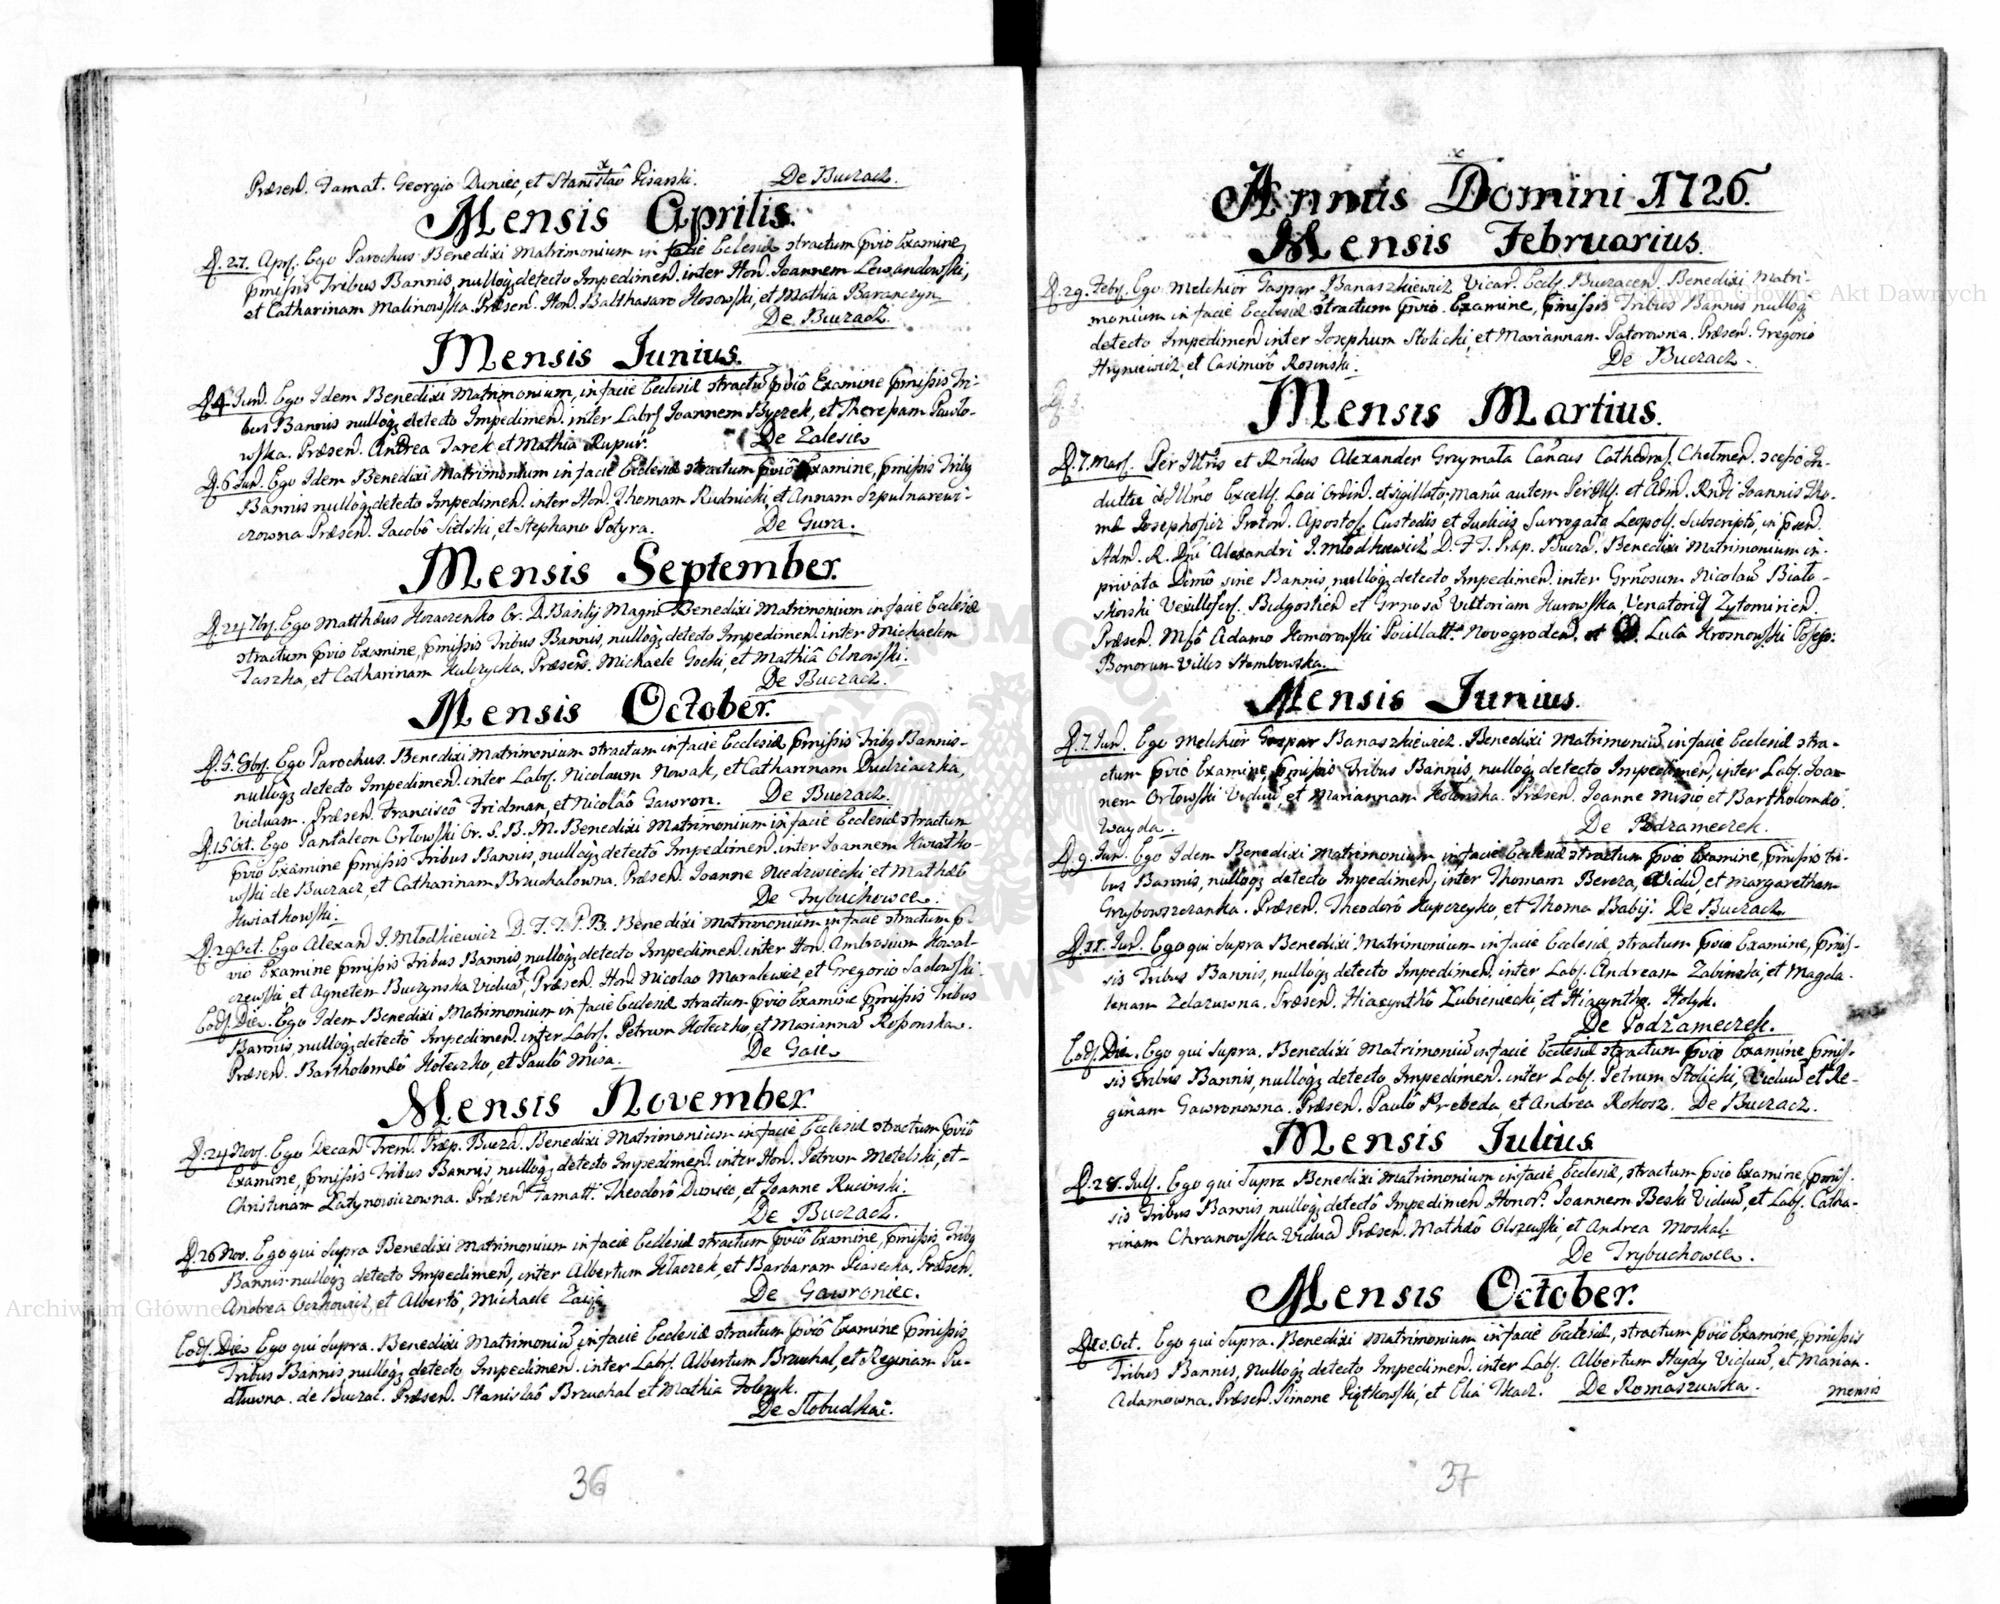 Præsen. Famat. Georgio Duniec, et Stanislaô Pisarski. De Buczacz.
Mensis Aprilis.
D. 27. Apr. Ego Parochus Benedixi Matrimonium in facie Ecclesiæ stractum pviô Examine,
pmissis Tribus Bannis, nulloq; detecto Impedimen. inter Hon. Joannem Lewandowski,
et Catharinam Malinowska. Præsen. Hon. Balthasaro Kosowski, et Mathia Baranczyn.
De Buczacz.
Mensis Junius.
D. 4 Jun. Ego Idem Benedixi Matrimonium, in facie Ecclesiæ stractū pviô Examine pmissis Tri-
bus Bannis nulloq; detecto Impedimen. inter Labr. Joannem Byczek, et Theresam Pawlo-
wska. Præsen. Andrea Tarek et Mathia Kupur. De Zalesie
D. 6 Jun. Ego Idem Benedixi Matrimonium in facie Ecclesiæ stractum pviô Examine, pmissis Trib9
Bannis nulloq; detecto Impedimen. inter Hon. Thomam Rudnicki, et Annam Szpulnarewi-
czowna Præsen. Jacobô Sielski, et Stephano Potyra. De Gura.
Mensis September.
D. 24 7br. Ego Matthæus Kozaczenko Or. D. Basilij Magni Benedixi Matrimonium in facie Ecclesiæ
stractum pvio Examine, pmissis Tribus Bannis, nulloq; detecto Impedimen. inter Michaelem
Taszka, et Catharinam Kulczycka. Præsen. Michaele Gocki, et Mathiâ Olszowski.
De Buczacz.
Mensis October.
D. 5. 8br. Ego Parochus. Benedixi Matrimonium stractum in facie Ecclesiæ pmissis Trib9 Bannis-
nulloq; detecto Impedimen. inter Labr. Nicolaum Nowak, et Catharinam Dudziaczka,
Viduam. Præsen. Franciscô Fridman, et Nicolaô Gawron. De Buczacz.
D. 15 Oct. Ego Pantaleon Orlowski Or. S. B. M. Benedixi Matrimonium in facie Ecclesiæ stractum
pviô Examine pmissis Tribus Bannis, nulloq; detectô Impedimen. inter Joannem Kwiatko-
wski de Buczacz, et Catharinam Brzuchalowna. Præsen. Joanne Niedzwiecki et Mathæô
Kwiatkowski. De Trybuchowce.
D. 29 Oct. Ego Alexan. J. Mlodkiewicz D. F. J. P. B. Benedixi Matrimonium in facie stractum p-
vio Examine pmissis Tribus Bannis, nulloq; detecto Impedimen. inter Hon. Ambrosium Kowal-
czewski et Agnetem Buczynska Viduā, Præsen. Hon. Nicolao Maralewicz et Gregorio Sadowski.
Eod. Die. Ego Idem Benedixi Matrimonium in facie Ecclesiæ stractum pvio Examine pmissis Tribus
Bannis, nulloq; detectô Impedimen. inter Labr. Petrum Koleczko, et Mariannā Rossonska.
Præsen. Bartholomæô Koleczko, et Paulô Misa. De Gaie
Mensis November.
D. 24 Nov. Ego Decan. Trem. Præp. Bucza. Benedixi Matrimonium in facie Ecclesiæ stractum pviô
Examine, pmissis Tribus Bannis, nulloq; detecto Impedimen. inter Hon. Petrum Metelski, et-
Christinam Latynowiczowna. Præsen. Famatt. Theodorô Duniec, et Joanne Rucinski.
De Buczacz.
D. 26 Nov. Ego qui Supra Benedixi Matrimonium in facie Ecclesiæ stractum pviô Examine, pmissis Trib9
Bannis nulloq; detecto Impedimen, inter Albertum Klaczek, et Barbaram Piasecka. Præsen.
Andrea Oczkowicz, et Albertô, Michaele Zaije De Gawroniec.
Eod. Die Ego qui Supra. Benedixi Matrimoniū in facie Ecclesiæ stractum pviô Examine pmissis,
Tribus Bannis, nulloq; detecto Impedimen. inter Labr. Albertum Brzuchal, et Reginam Pu-
dlowna. de Buczac. Præsen. Stanislaô Brzuchal et Mathia Folczyk.
De Slobudkai.
36
Annus Domini 1726.
Mensis Februarius.
D. 29. Febr. Ego Melchior Gaspar Banaszkiewicz Vicar. Eccl. Buczacen. Benedixi Matri-
monium in facie Ecclesiæ stractum pvio Examine, pmissis Tribus Bannis nulloq;
detecto Impedimen inter Josephum Stolicki, et Mariannam Tatorowna. Præsen. Gregorio
Hryniewicz, et Casimirô Rosinski. De Buczacz.
Mensis Martius.
D. 7. Mar. Per Illtris et Rndus Alexander Grzymala Cancus Cathedral. Chelmen. 
dultu ab Illmo Excell. Loci Ordin. et sigillatô, Manû autem Perill. et Adm. Rndi Joannis Tho-
mæ Josephowicz Proton. Apostol. Custodis et Judicis Surrogate Leopol. Subscriptô, in psen.
Adm. R. Dni Alexandri J. Mlodkiewicz D. F. J. Præp. Bucza. Benedixi Matrimonium in
privata Domô sine Bannis, nulloq; detecto Impedimen. inter Grnosum Nicolaū Bialo-
skorski Vexillifer. Bidgostien et Grnosā Victoriam Kurowska, Venatorid Zytomirien.
Præsen. Mfô Adamo Komorowski Pocillatt. Novogroden. et D. Lucâ Krosnowski Posses:
Bonorum Villes Stembowska.
Mensis Junius.
D. 7. Jun. Ego Melchior Gaspar Banaszkiewicz. Benedixi Matrimoniū in facie Ecclesiæ stra-
ctum pviô Examine, pmissis Tribus Bannis, nulloq; detecto Impedimen, inter Labr. Joan-
nem Orlowski Viduū, et Mariannam Kolonska. Præsen. Joanne Misio, et Bartholomæô
Wayda. De Podzameczek.
D. 9. Jun. Ego Idem Benedixi Matrimonium in facie Ecclesiæ stractum pvio Examine, pmissis Tri-
bus Bannis, nulloq; detecto Impedimen, inter Thomam Bereza, Vidū, et Margaretham
Grzybowszczanka. Præsen. Theodorô Kupczyko, et Thoma Babij. De Buczacz.
D. 11. Jun. Ego qui supra Benedixi Matrimonium in facie Ecclesiæ, stractum pvio Examine, pmis-
sis Tribus Bannis, nulloq; detecto Impedimen. inter Labr. Andream Zabinski, et Magda-
lenam Zelazuwna. Præsen. Hiacynthô Lubieniecki, et Hiacyntho Holyk.
De Podzameczek.
Eod. Die. Ego qui Supra. Benedixi Matrimoniū in facie Ecclesiæ stractum pvio Examine pmis-
sis Tribus Bannis, nulloq; detecto Impedimen. inter Labr. Petrum Stolicki, Viduū et Re-
ginam Gawronowna. Præsen. Paulô Przebeda, et Andrea Rokosz. De Buczacz.
Mensis Julius
D. 28. Jul. Ego qui Supra Benedixi Matrimonium in facie Ecclesiæ, stractum pvio Examine, pmis-
sis Tribus Bannis, nulloq; detectô Impedimen Honor. Joannem Beski Viduū, et Labr. Catha-
rinam Chranowska Viduā Præsen. Mathæô Olszewski, et Andrea Moskal.
De Trybuchowce.
Mensis October.
D. 10. Oct. Ego qui Supra. Benedixi Matrimonium in facie Ecclesiæ, stractum pviô Examine, pmissis
Tribus Bannis, Nulloq; detecto Impedimen. inter Labr. Albertum Haydy Viduū, et Marian.
Adamowna. Præsen. Simone Piątkowski, et Eliâ Tkacz. De Romaszuwka. Mensis
37
Archiwum Główne Akt Dawnych